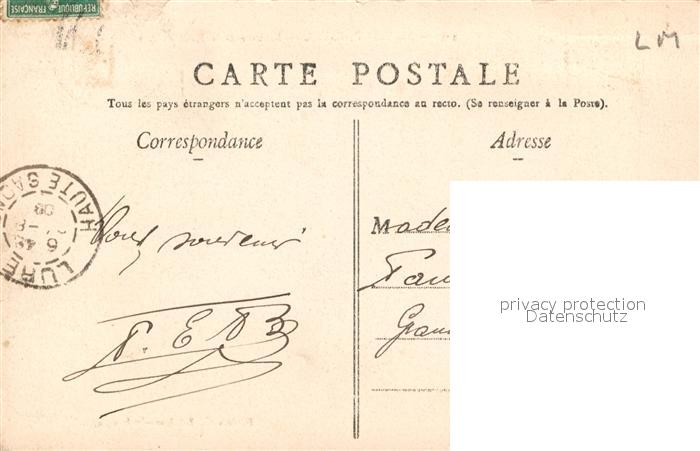 RÉPUBLIQUE FRANÇAISE
LM
CARTE POSTALE
Tous les pays étrangers n'acceptent pas la correspondance au recto. (Se renseigner à la Poste).
Correspondance
Adresse
HAUTE SAÔN
LURE
souvenir
Made
Gran
privacy protection
Datenschutz